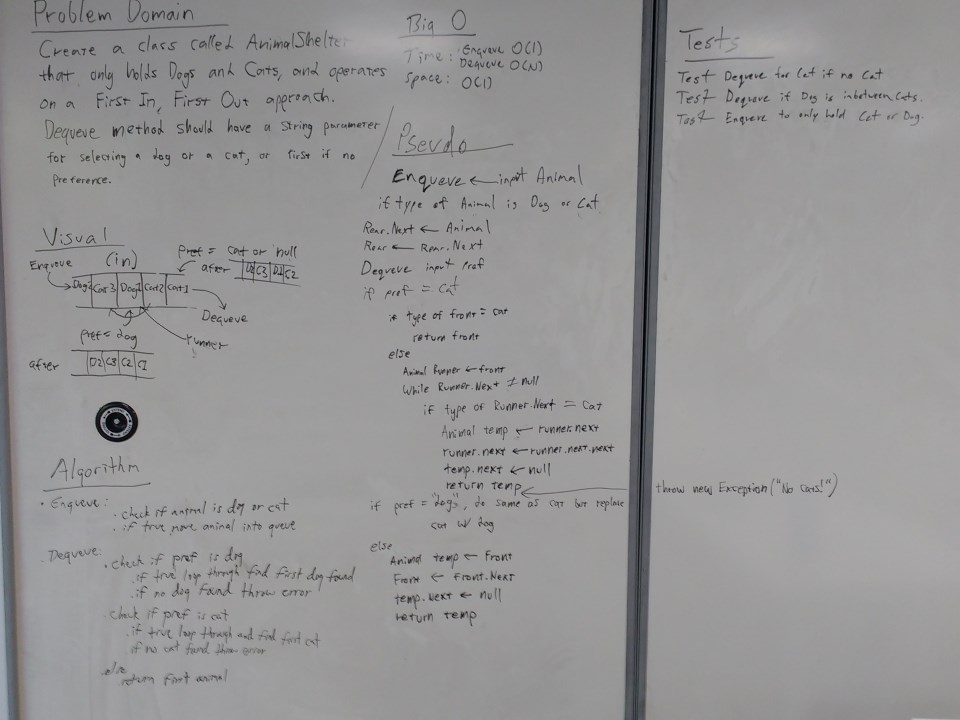 Problem Domain
Create a class called AnimalShelter
that only holds Dogs and Cats, and operates
on a First In, First Out approach.
Dequeue method should have a String parameter
for selecting a dog or a cat, or first if no
preference.
Visual
Enqueue (in)
pref = cat or null
after D2 C3 D1 C2
Dog2 Cat3 Dog1 Cat2 Cat1
Dequeue
runner
pref = dog
after D2 C3 C2 C1
Algorithm
· Enqueue:
· check if animal is dog or cat
· if true move animal into queue
· Dequeue:
· check if pref is dog
· if true loop through find first dog found
· if no dog found throw error
· check if pref is cat
· if true loop through and find first cat
if no cat found throw error
else
return first animal
Big O
Time: Enqueue O(1)
Dequeue O(N)
Space: O(1)
Pseudo
Enqueue ← input Animal
if type of Animal is Dog or Cat
Rear.Next ← Animal
Rear ← Rear.Next
Dequeue input Pref
if pref = Cat
if type of front = cat
return front
else
Animal Runner ← front
While Runner.Next ≠ null
if type of Runner.Next = Cat
Animal temp ← runner.next
runner.next ← runner.next.next
temp.next ← null
return temp
throw new Exception("No Cats!")
if pref = "dogs", do same as cat but replace
cat w/ dog
else
Animal temp ← Front
Front ← Front.Next
temp.Next ← null
return temp
Tests
Test Dequeue for Cat if no Cat
Test Dequeue if Dog is inbetween Cats.
Test Enqueue to only hold Cat or Dog.